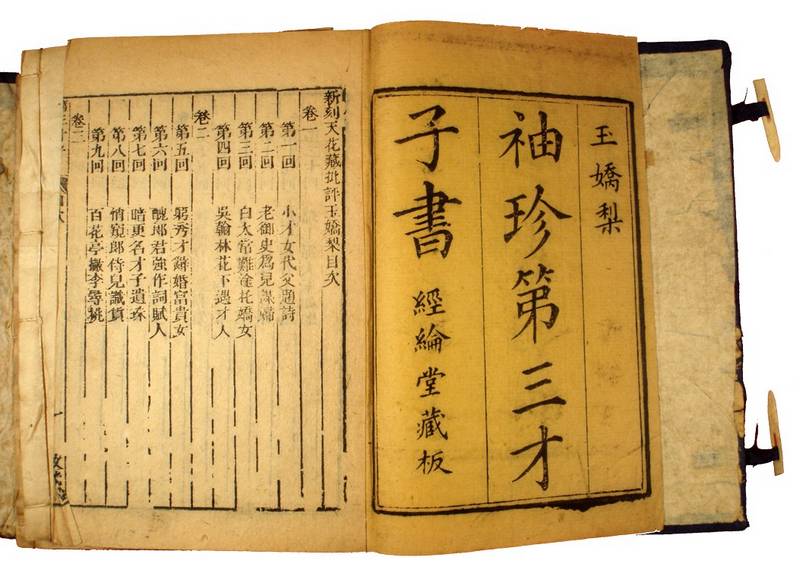 玉嬌梨
袖珍第三才
子書 經綸堂藏板
新刻天花藏批評玉嬌梨目次
卷一
第一回 小才女代父題詩
第二回 老御史爲兒謀婦
第三回 白太常難途托嬌女
第四回 吳翰林花下遇才人
卷二
第五回 窮秀才辭婚富貴女
第六回 醜郎君強作詞賦人
第七回 暗更名才子遺珠
第八回 悄窺郎侍兒識貨
第九回 百花亭撇李尋桃
卷三